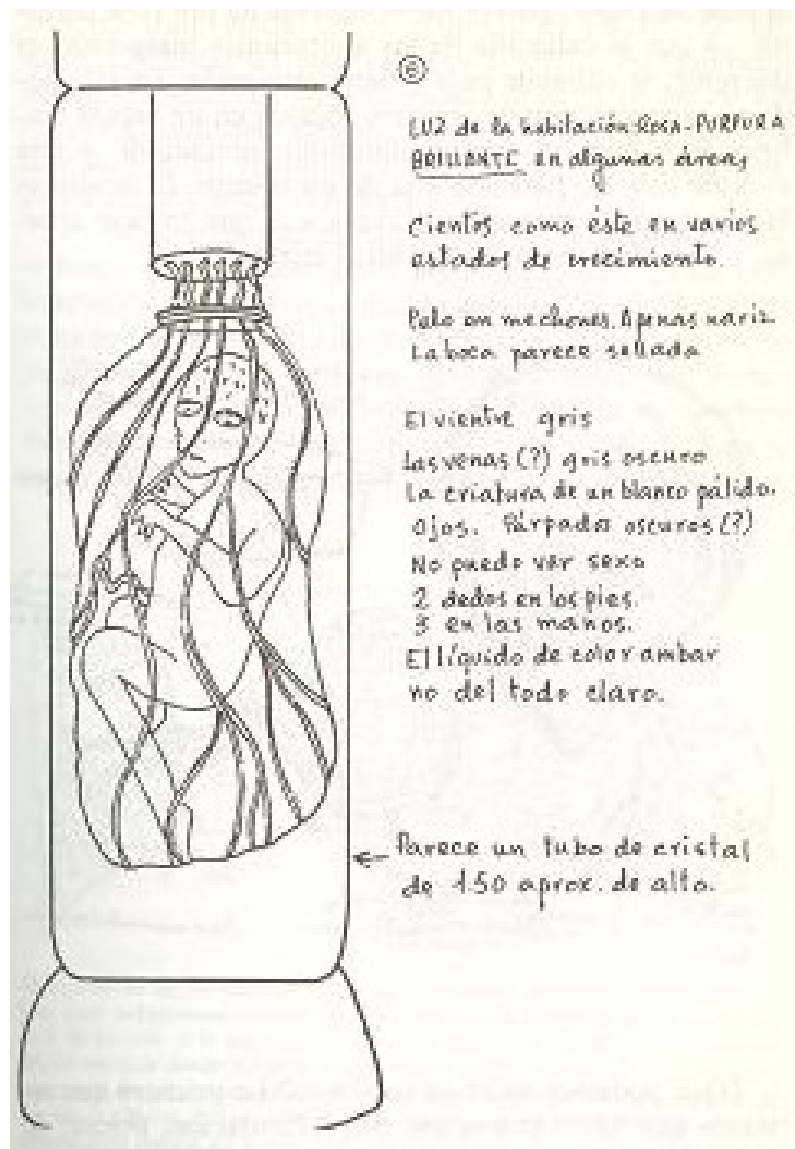 ⑥
LUZ de la habitación-ROSA-PURPURA
BRILLANTE en algunas áreas
Cientos como éste en varios
estados de crecimiento.
Pelo en mechones. Apenas nariz
La boca parece sellada
El vientre gris
Las venas (?) gris oscuro
La criatura de un blanco pálido.
Ojos. Párpados oscuros (?)
No puedo ver sexo
2 dedos en los pies.
3 en las manos.
El líquido de color ambar
no del todo claro.
Parece un tubo de cristal
de 1.50 aprox. de alto.